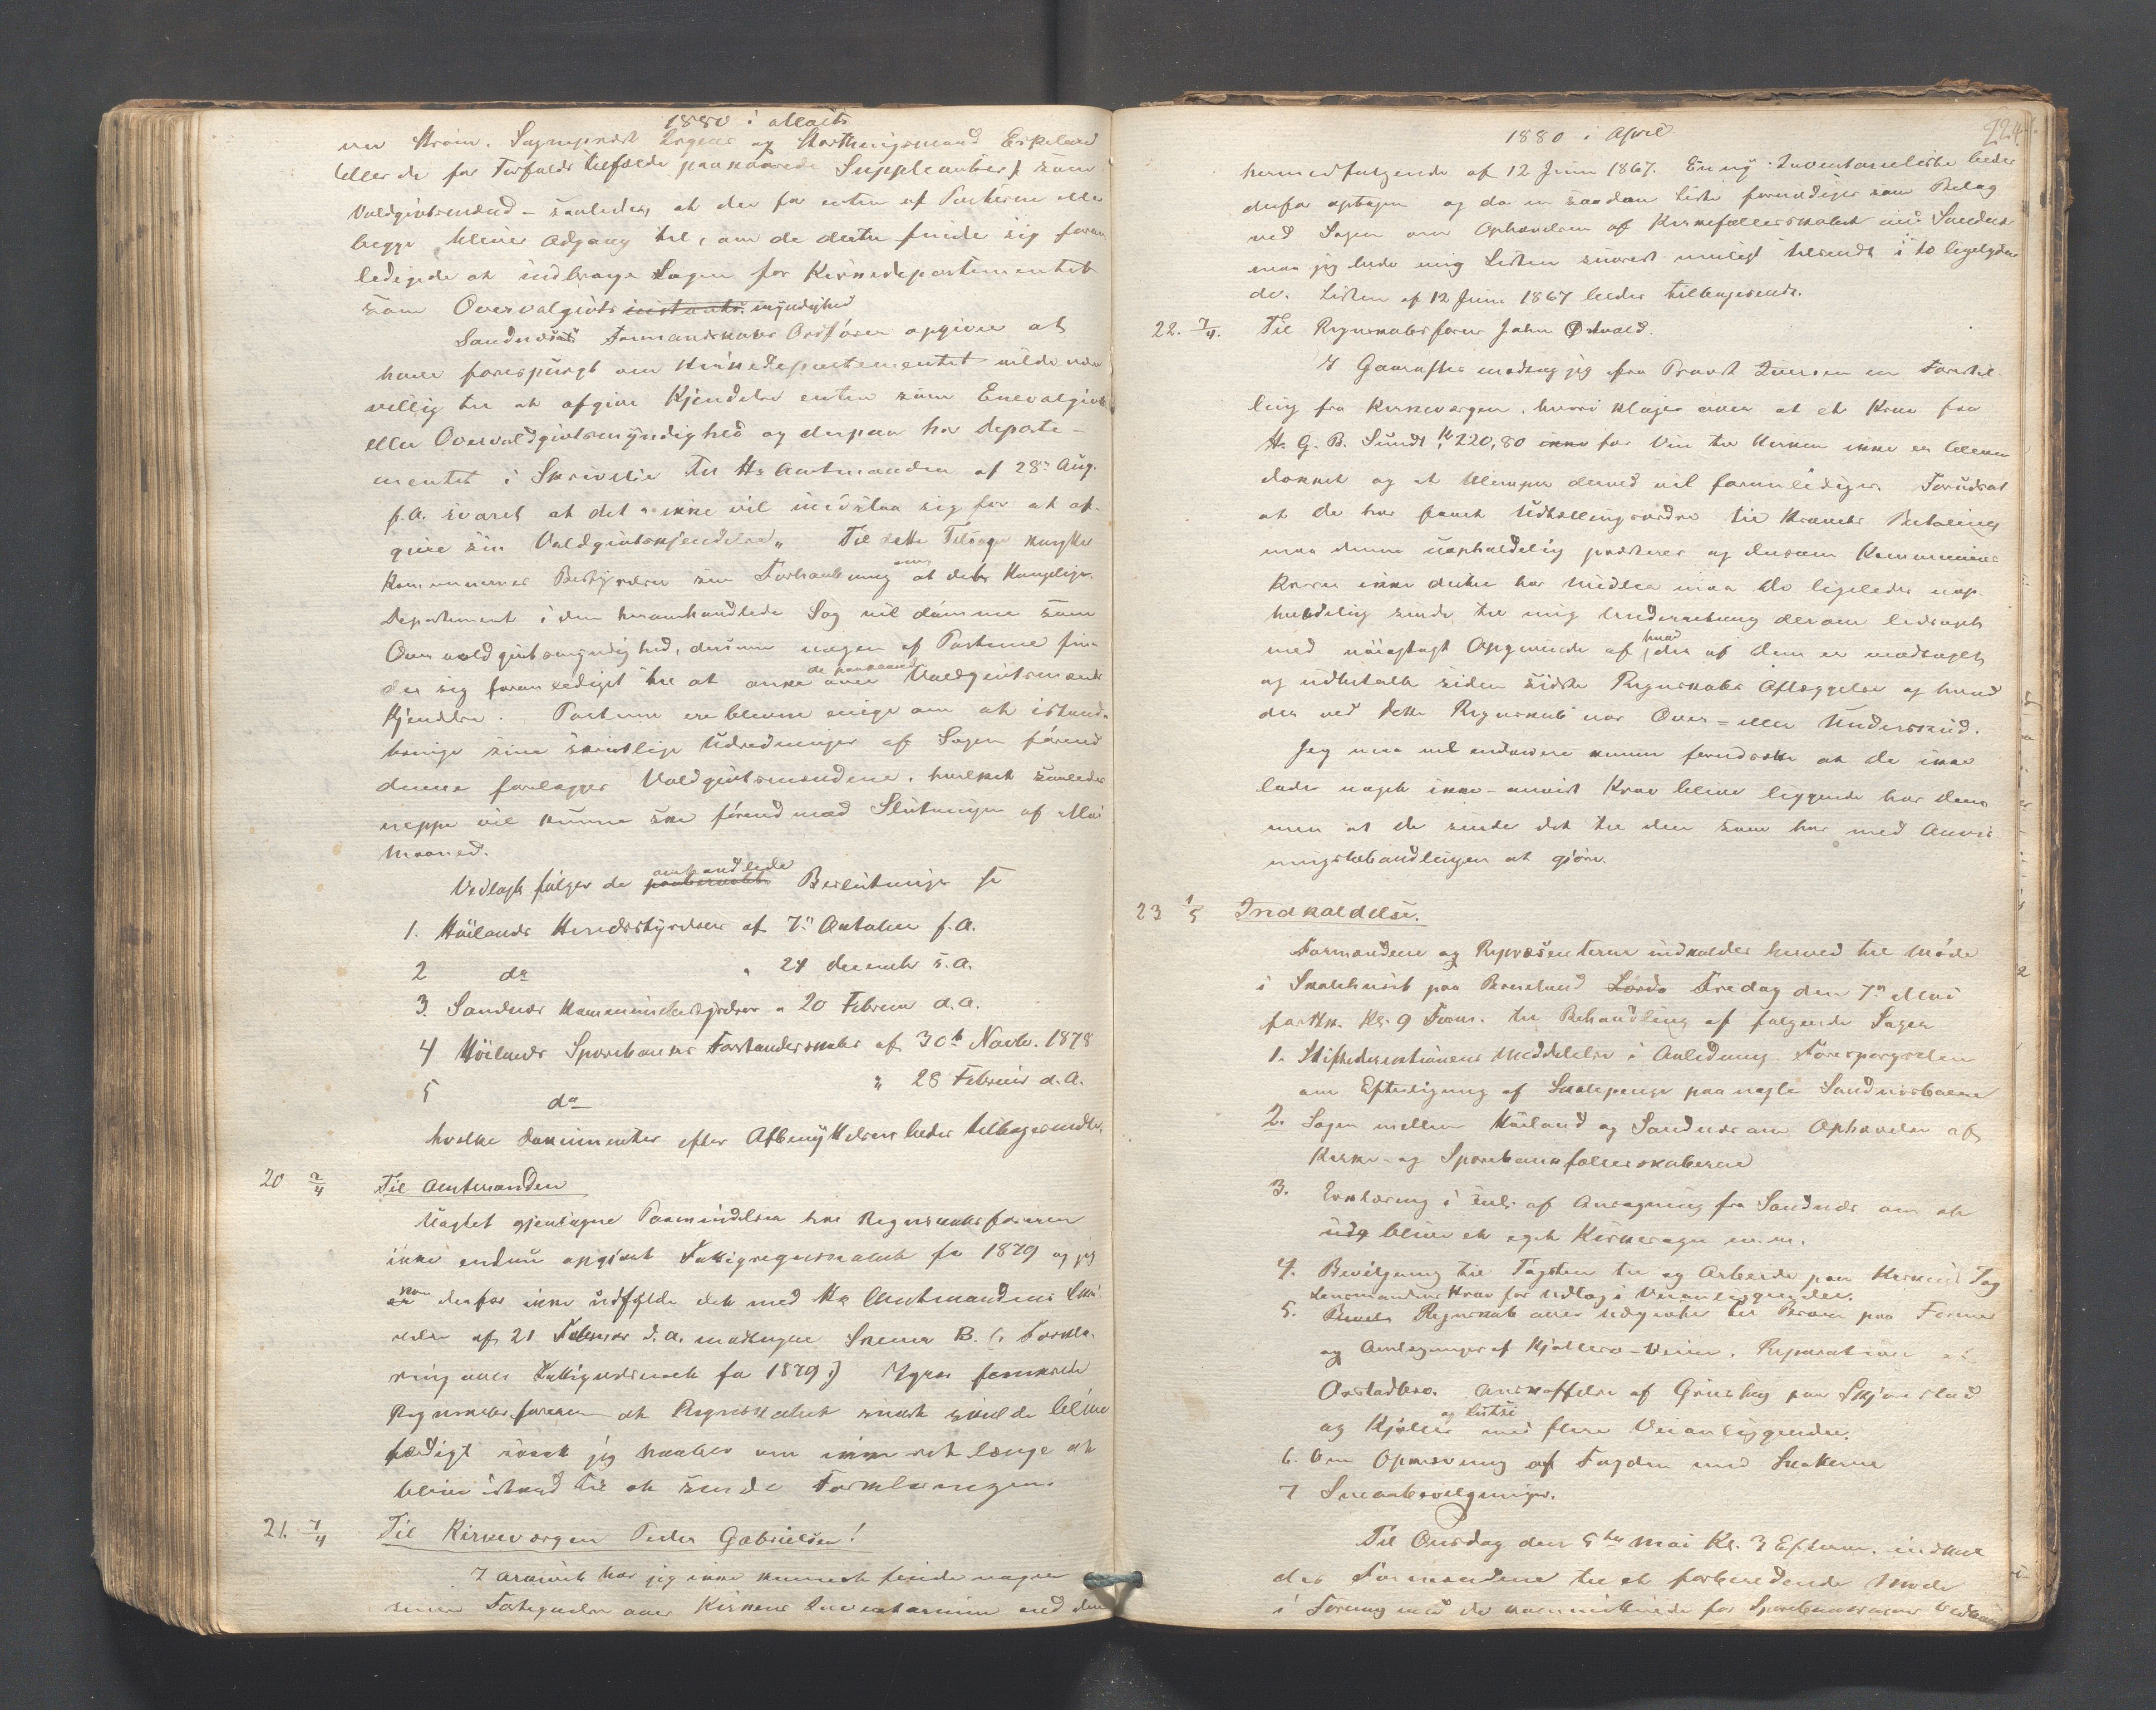 1880 i Marts
Strøm, Sogneprest og Storthingsmand Eskeland
(eller de for Forfalds tilfælde paakaarede Suppleanter) som
Voldgivtsmænd – saaledes, at der for enten af Parterne eller
begge bliver Adgang til, om de dertil finde sig foran
ledigede at indbringe Sagen for Kirkedepartementet
som Overvalgivts instants. myndighed
Sandnæs Formandskabs Ordfører opgiver at
have forespurgt om Kirkedepartementet vilde være
villig til at afgive Kjendelse enten som Enevalgivts
eller Overvoldgivtsmyndighed og derpaa har Departe-
mentet i Skrivelse til Hr Amtmanden af 28de Aug.
f.A. svaret at det "ikke vil undslaa sig for at af-
give sin Voldgivtskjendelse" Til dette Tilsagn knytte
Kommunernes Bestyrelser sin Forhaabning om at det Kongelige
Departement i den heromhandlede Sag vil dømme som
Overvoldgivtsmyndighed, dersom nogen af Parterne fin-
der sig foranlediget til at anke over de paakaarede Voldgivtsmænds
Kjendelse. Parterne ere blevne enige om at istand-
bringe sine skrivtlige Udredninger af Sagen førend
denne forelægges Voldgivtsmændene, hvilket saaledes
neppe vil kunne ske førend med Slutningen af Mai
Maaned.
Vedlagt følger de paaberaabte omhandlede Beslutninger fra
1. Høilands Herredsstyrelse af 7de Oktober f.A.
2 do " 24 December s.A.
3. Sandnæs Kommunebestyrelse " 20 Februar d.A.
4 Høilands Sparebanks Forstanderskab af 30te Novbr. 1878
5 do " 28 Februar d.A.
hvilke Dokumenter efter Afbenyttelsen bedes tilbagesendte.
20 2/4 Til Amtmanden
Uagtet gjentagne Paamindelser har Regnskabsføreren
ikke endnu opgjort Fattigregnskabet for 1879 og jeg
kan derfor ikke udfylde det med Hr Amtmandens Skri
velse af 21 Februar d.A. modtagne Skema B. (: Forkla-
ring over Fattigvæsenet for 1879:) Igaar forsikrede
Regnskabsføreren at Regnskabet snart skulde blive
færdigt saa at jeg haaber om ikke ret længe at
blive istand til at sende Forklaringen.
21. 7/4 Til Kirkevergen Peder Gabrielsen!
I Arkivet har jeg ikke kunnet finde nogen
senere Fortegnelse over Kirkens Inventarium end den
224.
1880 i April
hermedfølgende af 12 Juni 1867. En ny Inventarieliste bedes
derfor optagen og da en saadan Liste fornødiges som Bilag
ved Sagen om Ophævelsen af Kirkefællesskabet med Sandnæs
maa jeg bede mig Listen snarest muligt tilsendt i to ligelyden
de. Listen af 12 Juni 1867 bedes tilbagesendt.
22. 7/4. Til Regnskabsfører John Østvold.
I Gaaraftes modtog jeg fra Provst Iversen en Forestil-
ling fra Kirkevergen, hvori klages over at et Krav fra
H. G. B. Sundt, Kr 220,80 ikke for Vin til Kirken ikke er bleven
dækket og at Ulemper derved vil foranlediges. Forudsat
at De har faaet Udbetalingsordre til Kravets Betaling
maa denne uopholdelig præsteres og dersom Kommunens
Kasse ikke dertil har Midler maa De ligeledes uop-
holdelig sende til mig Underretning derom ledsaget
med nøiagtigt Opgivende af hvad der af Dem er modtaget
og udbetalt siden sidste Regnskabs Aflæggelse og hvad
der ved dette Regnskab var Over- eller Underskud.
Jeg maa vel endvidere kunne forudsætte at De ikke
lader noget ikke-anvist Krav blive liggende hos Dem
men at De sender det til den som har med Anvis
ningsbehandlingen at gjøre.
23 1/5 Indkaldelse.
Formændene og Repræsentanterne indkaldes herved til Møde
i Skolehuset paa Lørda Fredag den 7de Mai
førstk. Kl. 9 Form. til Behandling af følgende Sager
1. Stiftsdirektionens Meddelelse i Anledning Forespørgselen
om Efterligning af Skolepenge paa nogle Sandnæsboere
2. Sagen mellem Høiland og Sandnæs om Ophævelse af
Kirke- og Sparebankfællesskaberne
3. Erklæring i Anl. af Ansøgning fra Sandnæs om at
udg blive et eget Kirkesogn m.m.
4. Bevilgning til Tagsten til og Arbeide paa Kirkens Tag
Lensmandens Krav for Udlæg i Veianliggender.
5. Regnskab over Udgivter til Broen paa
og Omlægninger af Kjøllers-Veien, Reparation af
Aastadbro. Anskaffelse af Grustag paa Skjæveland
og Kjølles og Lutsi med flere Veianliggender.
6. Om Opmaaling af Jorden med Skakerne
7 Smaabevilgninger.
Til Onsdag den 5te Mai Kl. 3 Efterm. indkal
des Formændene til et forberedende Møde
i Forening med de kommitterede for Sparebanksagens